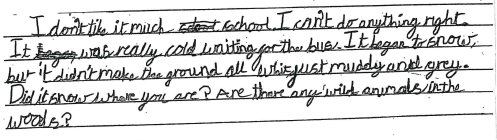 I don't like it much school. I can't do anything right.
It was really cold waiting for the bus. It began to snow,
but it didn't make the ground all white just muddy and grey.
Did it snow where you are? Are there any wild animals in the
woods?